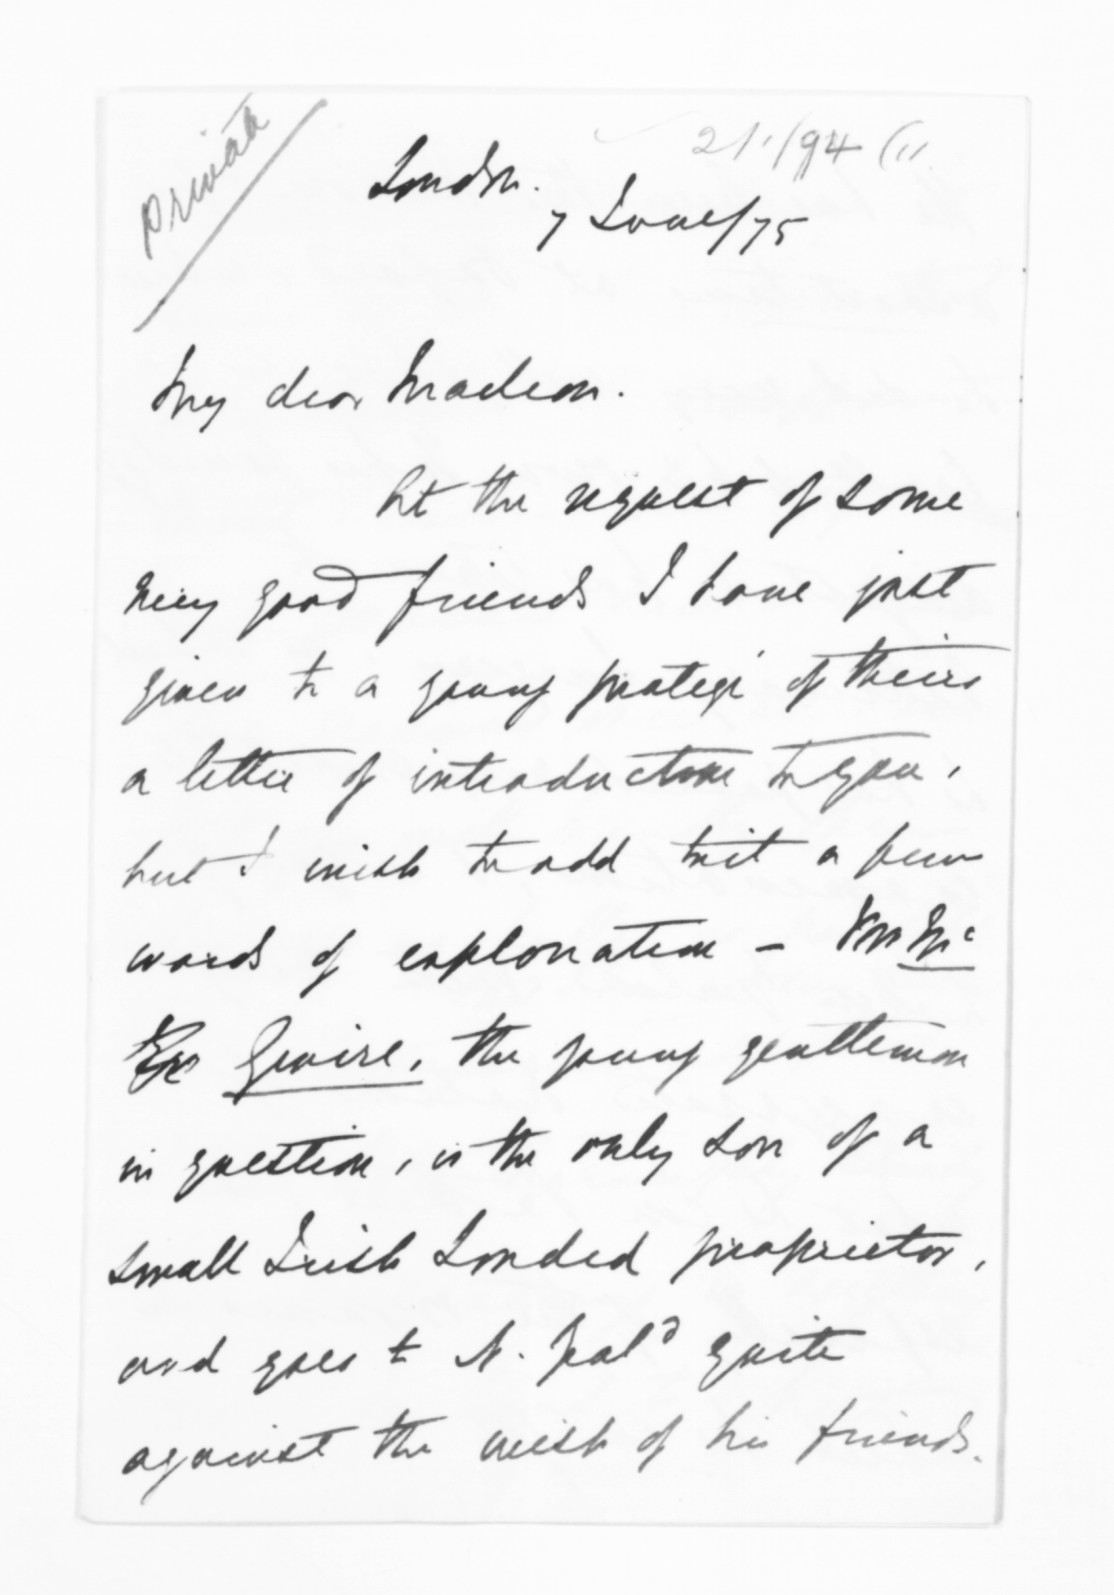 private
London.
7 June/75
My dear Maclean.
At the request of some
very good friends I have just
given to a young protegé of theirs
a letter of introduction to you,
but I wish to add to it a few
words of explanation - Mc
Guire, the young gentleman
in question, is the only son of a
small Irish Landed proprietor,
and goes to N. Zeald quite
against the wish of his friends.